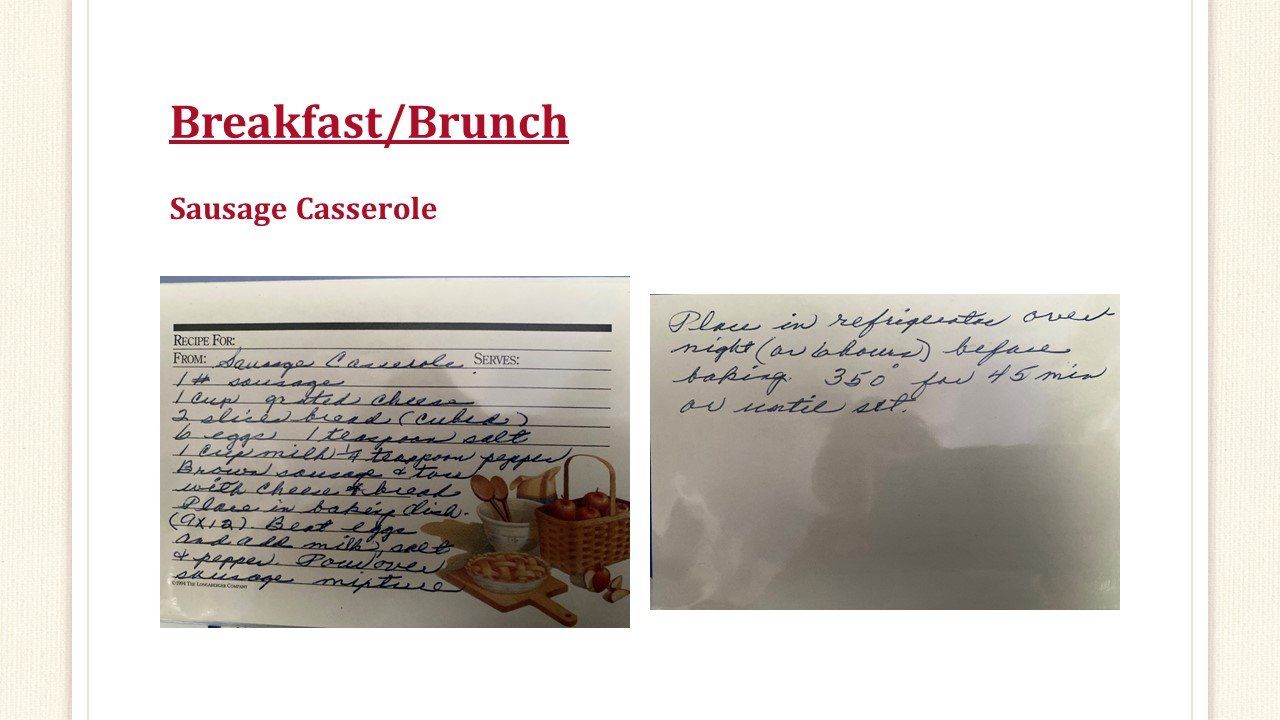 Breakfast/Brunch
Sausage Casserole
RECIPE FOR:
FROM: Sausage Casserole SERVES:
1 # sausage
1 Cup grated cheese
2 slices bread (cubed)
6 eggs 1 teaspoon salt
1 Cup milk 1/4 teaspoon pepper
Brown sausage & toss
with cheese & bread
Place in baking dish.
(9x12) Beat eggs
and add milk, salt
& pepper Pour over
©1994 THE LONGABERGER COMPANY
sausage mixture
Place in refrigerator over
night (or 6 hours) before
baking. 350° for 45 min
or until set.